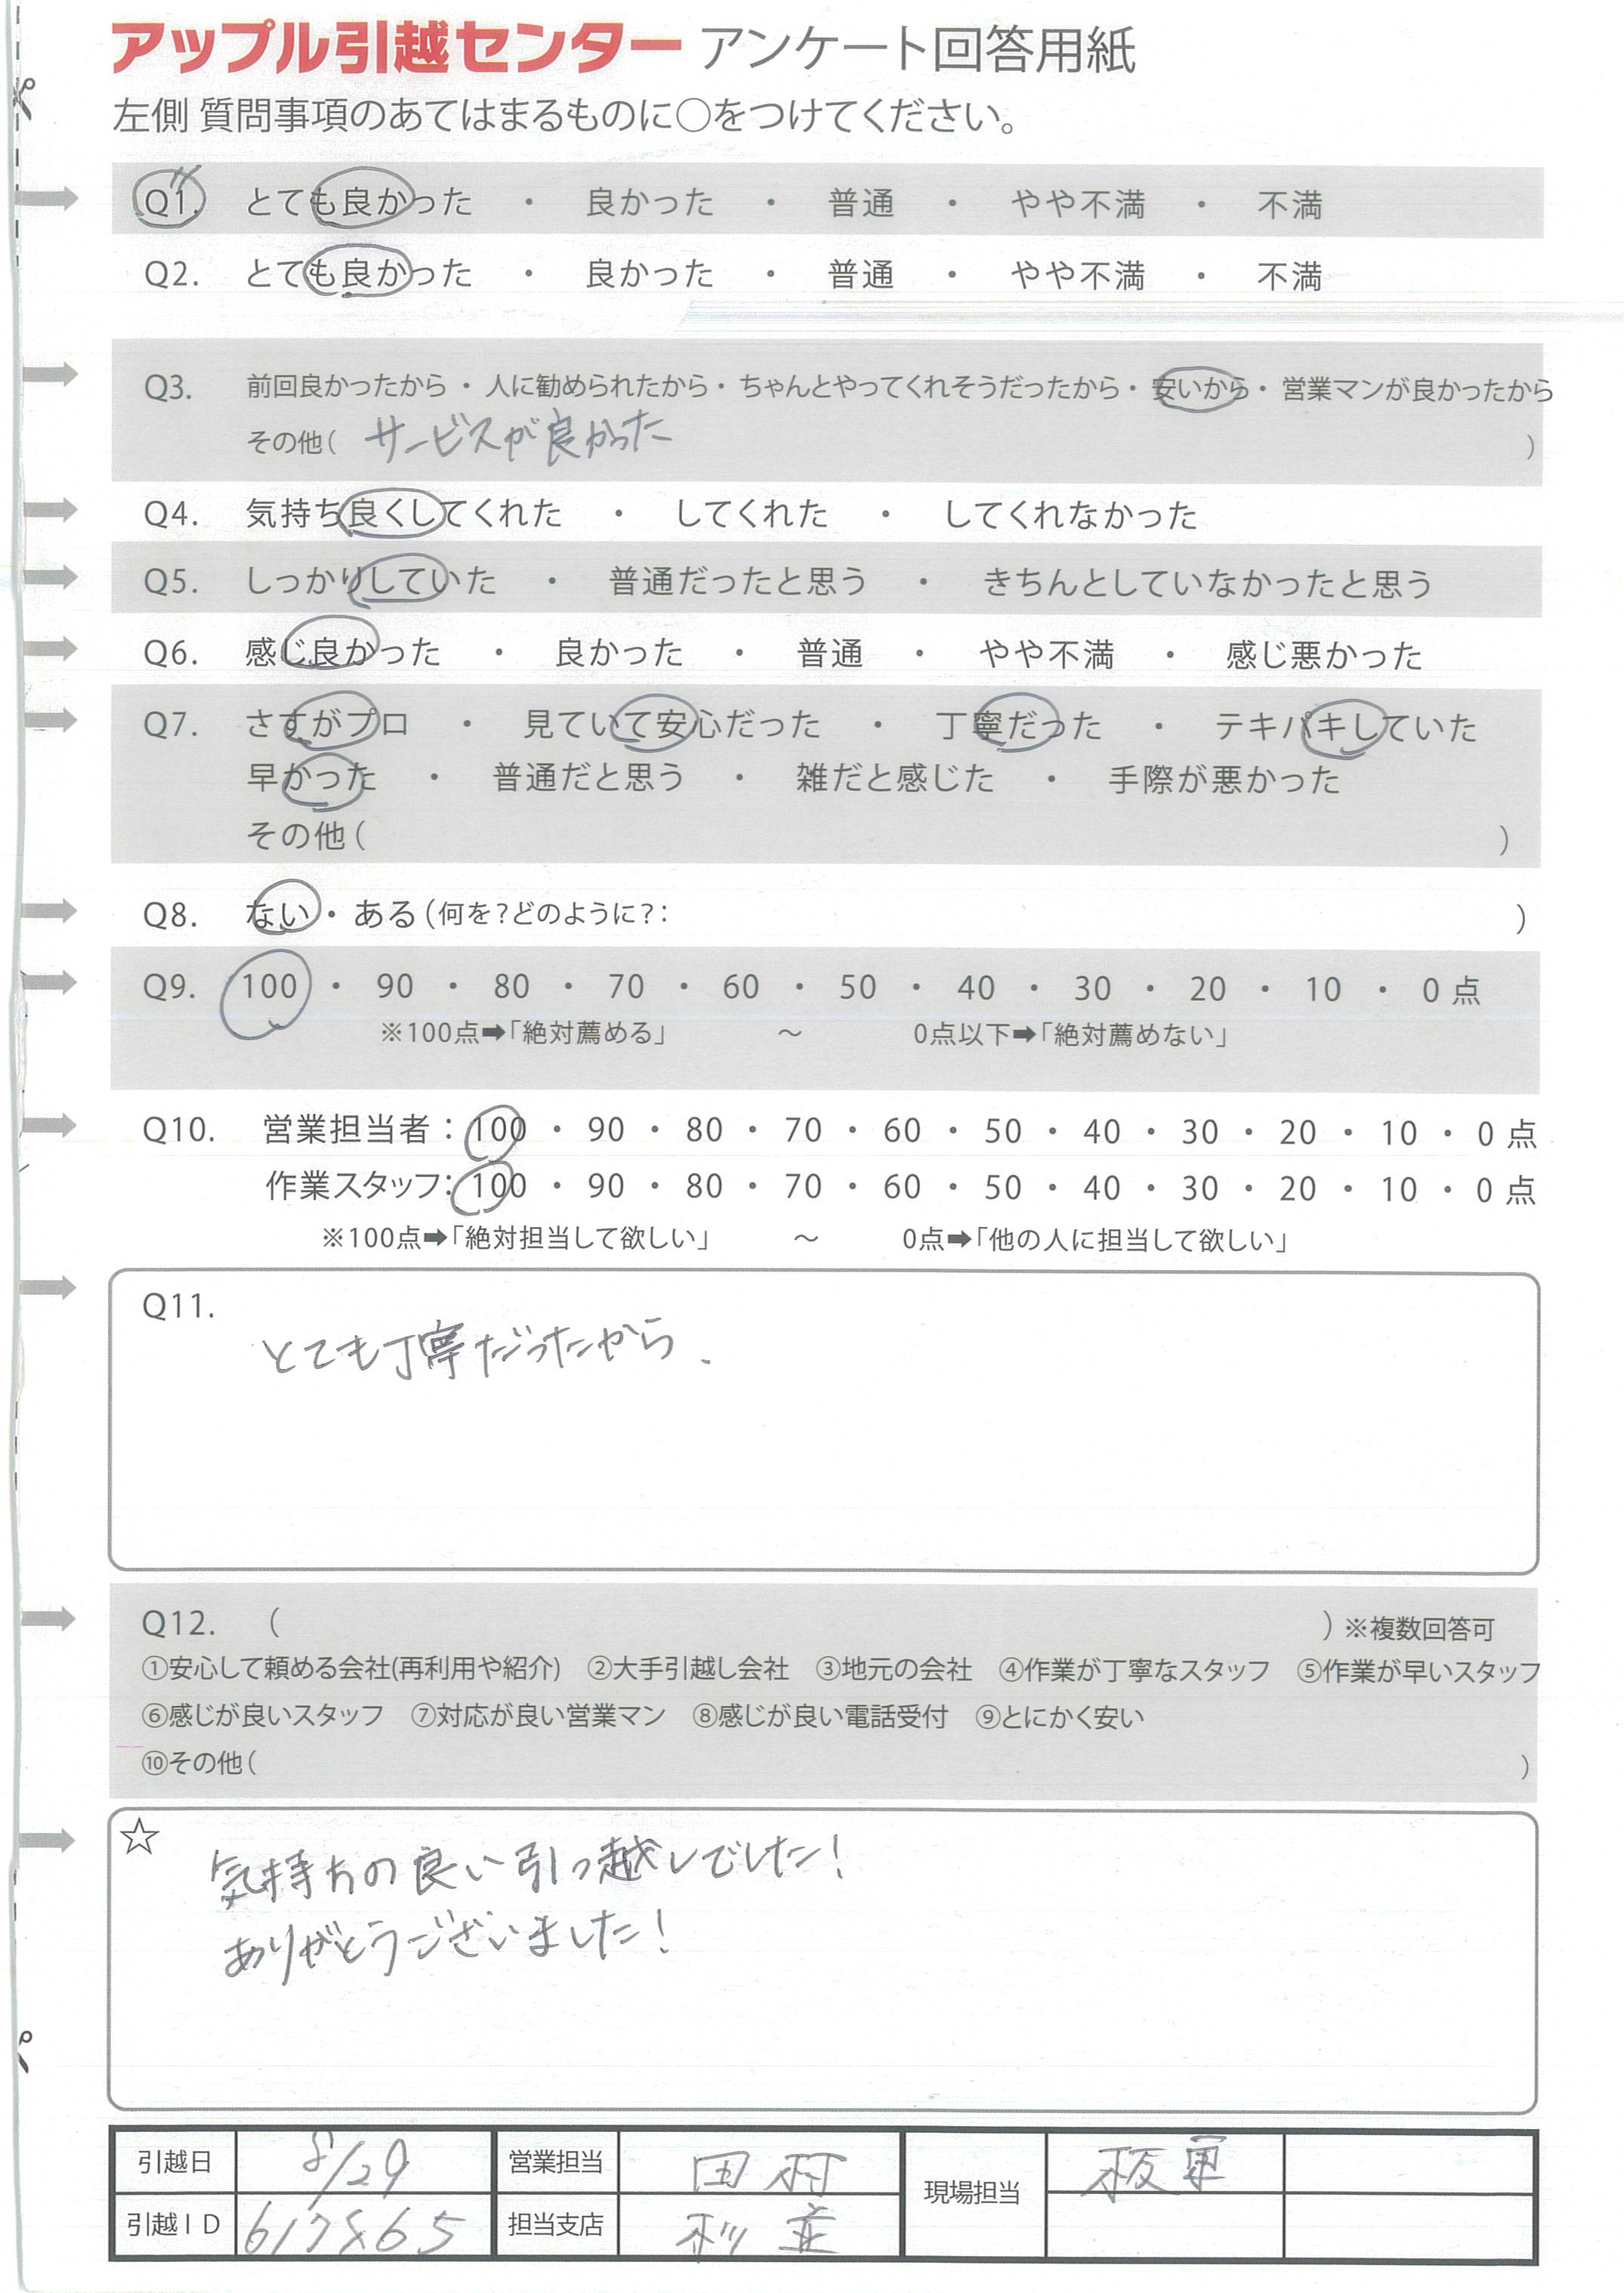 アップル引越センター アンケート回答用紙
左側 質問事項のあてはまるものに○をつけてください。
Q1. とても良かった ・ 良かった ・ 普通 ・ やや不満 ・ 不満
Q2. とても良かった ・ 良かった ・ 普通 ・ やや不満 ・ 不満
Q3. 前回良かったから ・ 人に勧められたから ・ ちゃんとやってくれそうだったから ・ 安いから ・ 営業マンが良かったから
その他( サービスが良かった )
Q4. 気持ち良くしてくれた ・ してくれた ・ してくれなかった
Q5. しっかりしていた ・ 普通だったと思う ・ きちんとしていなかったと思う
Q6. 感じ良かった ・ 良かった ・ 普通 ・ やや不満 ・ 感じ悪かった
Q7. さすがプロ ・ 見ていて安心だった ・ 丁寧だった ・ テキパキしていた
早かった ・ 普通だと思う ・ 雑だと感じた ・ 手際が悪かった
その他( )
Q8. ない ・ ある (何を?どのように?: )
Q9. 100 ・ 90 ・ 80 ・ 70 ・ 60 ・ 50 ・ 40 ・ 30 ・ 20 ・ 10 ・ 0 点
※100点➡「絶対薦める」 〜 0点以下➡「絶対薦めない」
Q10. 営業担当者: 100 ・ 90 ・ 80 ・ 70 ・ 60 ・ 50 ・ 40 ・ 30 ・ 20 ・ 10 ・ 0 点
作業スタッフ: 100 ・ 90 ・ 80 ・ 70 ・ 60 ・ 50 ・ 40 ・ 30 ・ 20 ・ 10 ・ 0 点
※100点➡「絶対担当して欲しい」 〜 0点➡「他の人に担当して欲しい」
Q11.
とても丁寧だったから.
Q12. ( ) ※複数回答可
①安心して頼める会社(再利用や紹介) ②大手引越し会社 ③地元の会社 ④作業が丁寧なスタッフ ⑤作業が早いスタッフ
⑥感じが良いスタッフ ⑦対応が良い営業マン ⑧感じが良い電話受付 ⑨とにかく安い
⑩その他( )
☆ 気持ちの良い引っ越しでした!
ありがとうございました!
引越日 8/29 営業担当 田村 現場担当
引越ID 617865 担当支店 杉並